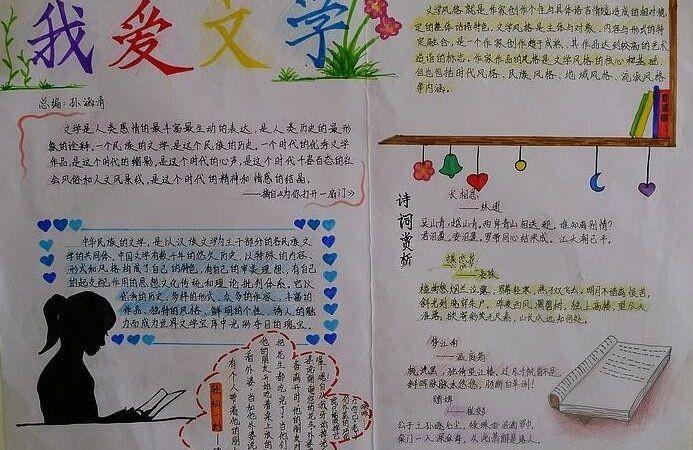 我爱文学
总编：孙涵清
文学是人类感情的最丰富最生动的表达，是人类历史的最形
象的诠释，一个民族的文学，是这个民族的历史。一个时代的优秀文学
作品，是这个时代的缩影，是这个时代的心声，是这个时代千姿百态的社
会风俗和人文风景线，是这个时代的精神和情感的结晶。
——摘自《为你打开一扇门》
中华民族的文学，是以汉族文学为主干部分的各民族文
学的共同体。中国文学有数千年的悠久历史，以特殊的内容、
形式和风格构成了自己的特色，有自己的审美理想，有自己
的起支配作用的思想文化传统和理论批判体系。它以
优秀的历史、多样的形式、众多的作家、丰富的
作品、独特的风格、鲜明的个性、诱人的魅
力而成为世界文学宝库中光彩夺目的瑰宝。
文学风格，就是作家创作个性与具体话语情境造成的相对稳
定的整体话语特色。文学风格是主体与对象、内容与形式的特
定融合，是一个作家创作趋于成熟、其作品达到较高的艺术
造诣的标志。作家作品的风格是文学风格的核心和基础，
但也包括时代风格、民族风格、地域风格、流派风格
等内涵。
诗词赏析
长相思
——林逋
吴山青，越山青，两岸青山相送迎，谁知离别情？
君泪盈，妾泪盈，罗带同心结未成，江头潮已平。
蝶恋花
——晏殊
槛菊愁烟兰泣露，罗幕轻寒，燕子双飞去，明月不谙离恨苦，
斜光到晓穿朱户。昨夜西风凋碧树，独上高楼，望尽天
涯路，欲寄彩笺无尺素，山长水远知何处。
梦江南
——温庭筠
梳洗罢，独倚望江楼，过尽千帆皆不是，
斜晖脉脉水悠悠，肠断白苹洲！
赠婢
——崔郊
公子王孙逐后尘，绿珠垂泪滴罗巾，
侯门一入深似海，从此萧郎是路人。